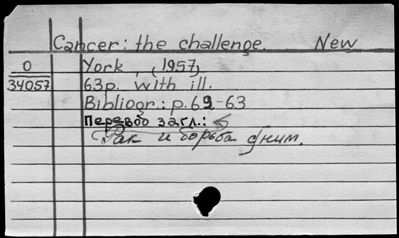 Cancer: the challenge. New
0 York, (1957)
34057 63p. with ill.
Bibliogr.: p.69-63
Перевод загл.:
Рак и борьба с ним.